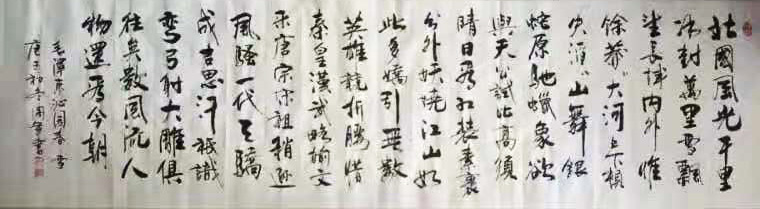 北國風光千里
冰封萬里雪飄
望長城内外惟
餘莽々大河上下頓
失滔々山舞銀
蛇原馳蠟象欲
與天公試比高須
晴日看紅裝素裹
分外妖嬈江山如
此多嬌引無數
英雄競折腰惜
秦皇漢武略输文
采唐宗宋祖稍遜
風騷一代天驕
成吉思汗祇識
彎弓射大雕俱
往矣數風流人
物還看今朝
毛澤東沁園春雪
庚子初冬周書